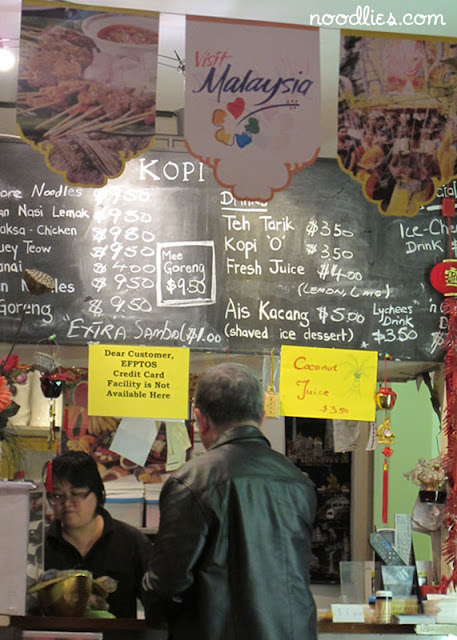 noodlies.com
Visit
Malaysia
KOPI
ore Noodles $9.50
an Nasi Lemak $9.80
aksa - Chicken $9.80
uey Teow $9.50
anai $4.00
n N les $9.50
Goreng $9.50
"Extra Sambal $1.00
Mee
Goreng
$9.50
Drinks
Teh Tarik $3.50
Kopi 'O' $3.50
Fresh Juice $4.00
(LEMON, LIME)
Ais Kacang $5.00
(shaved ice dessert)
Ice-Che
Drink $
Lychees "n
Drink
$3.50
Dear Customer,
EFPTOS
Credit Card
Facility is Not
Available Here
Coconut
Juice
$3.50